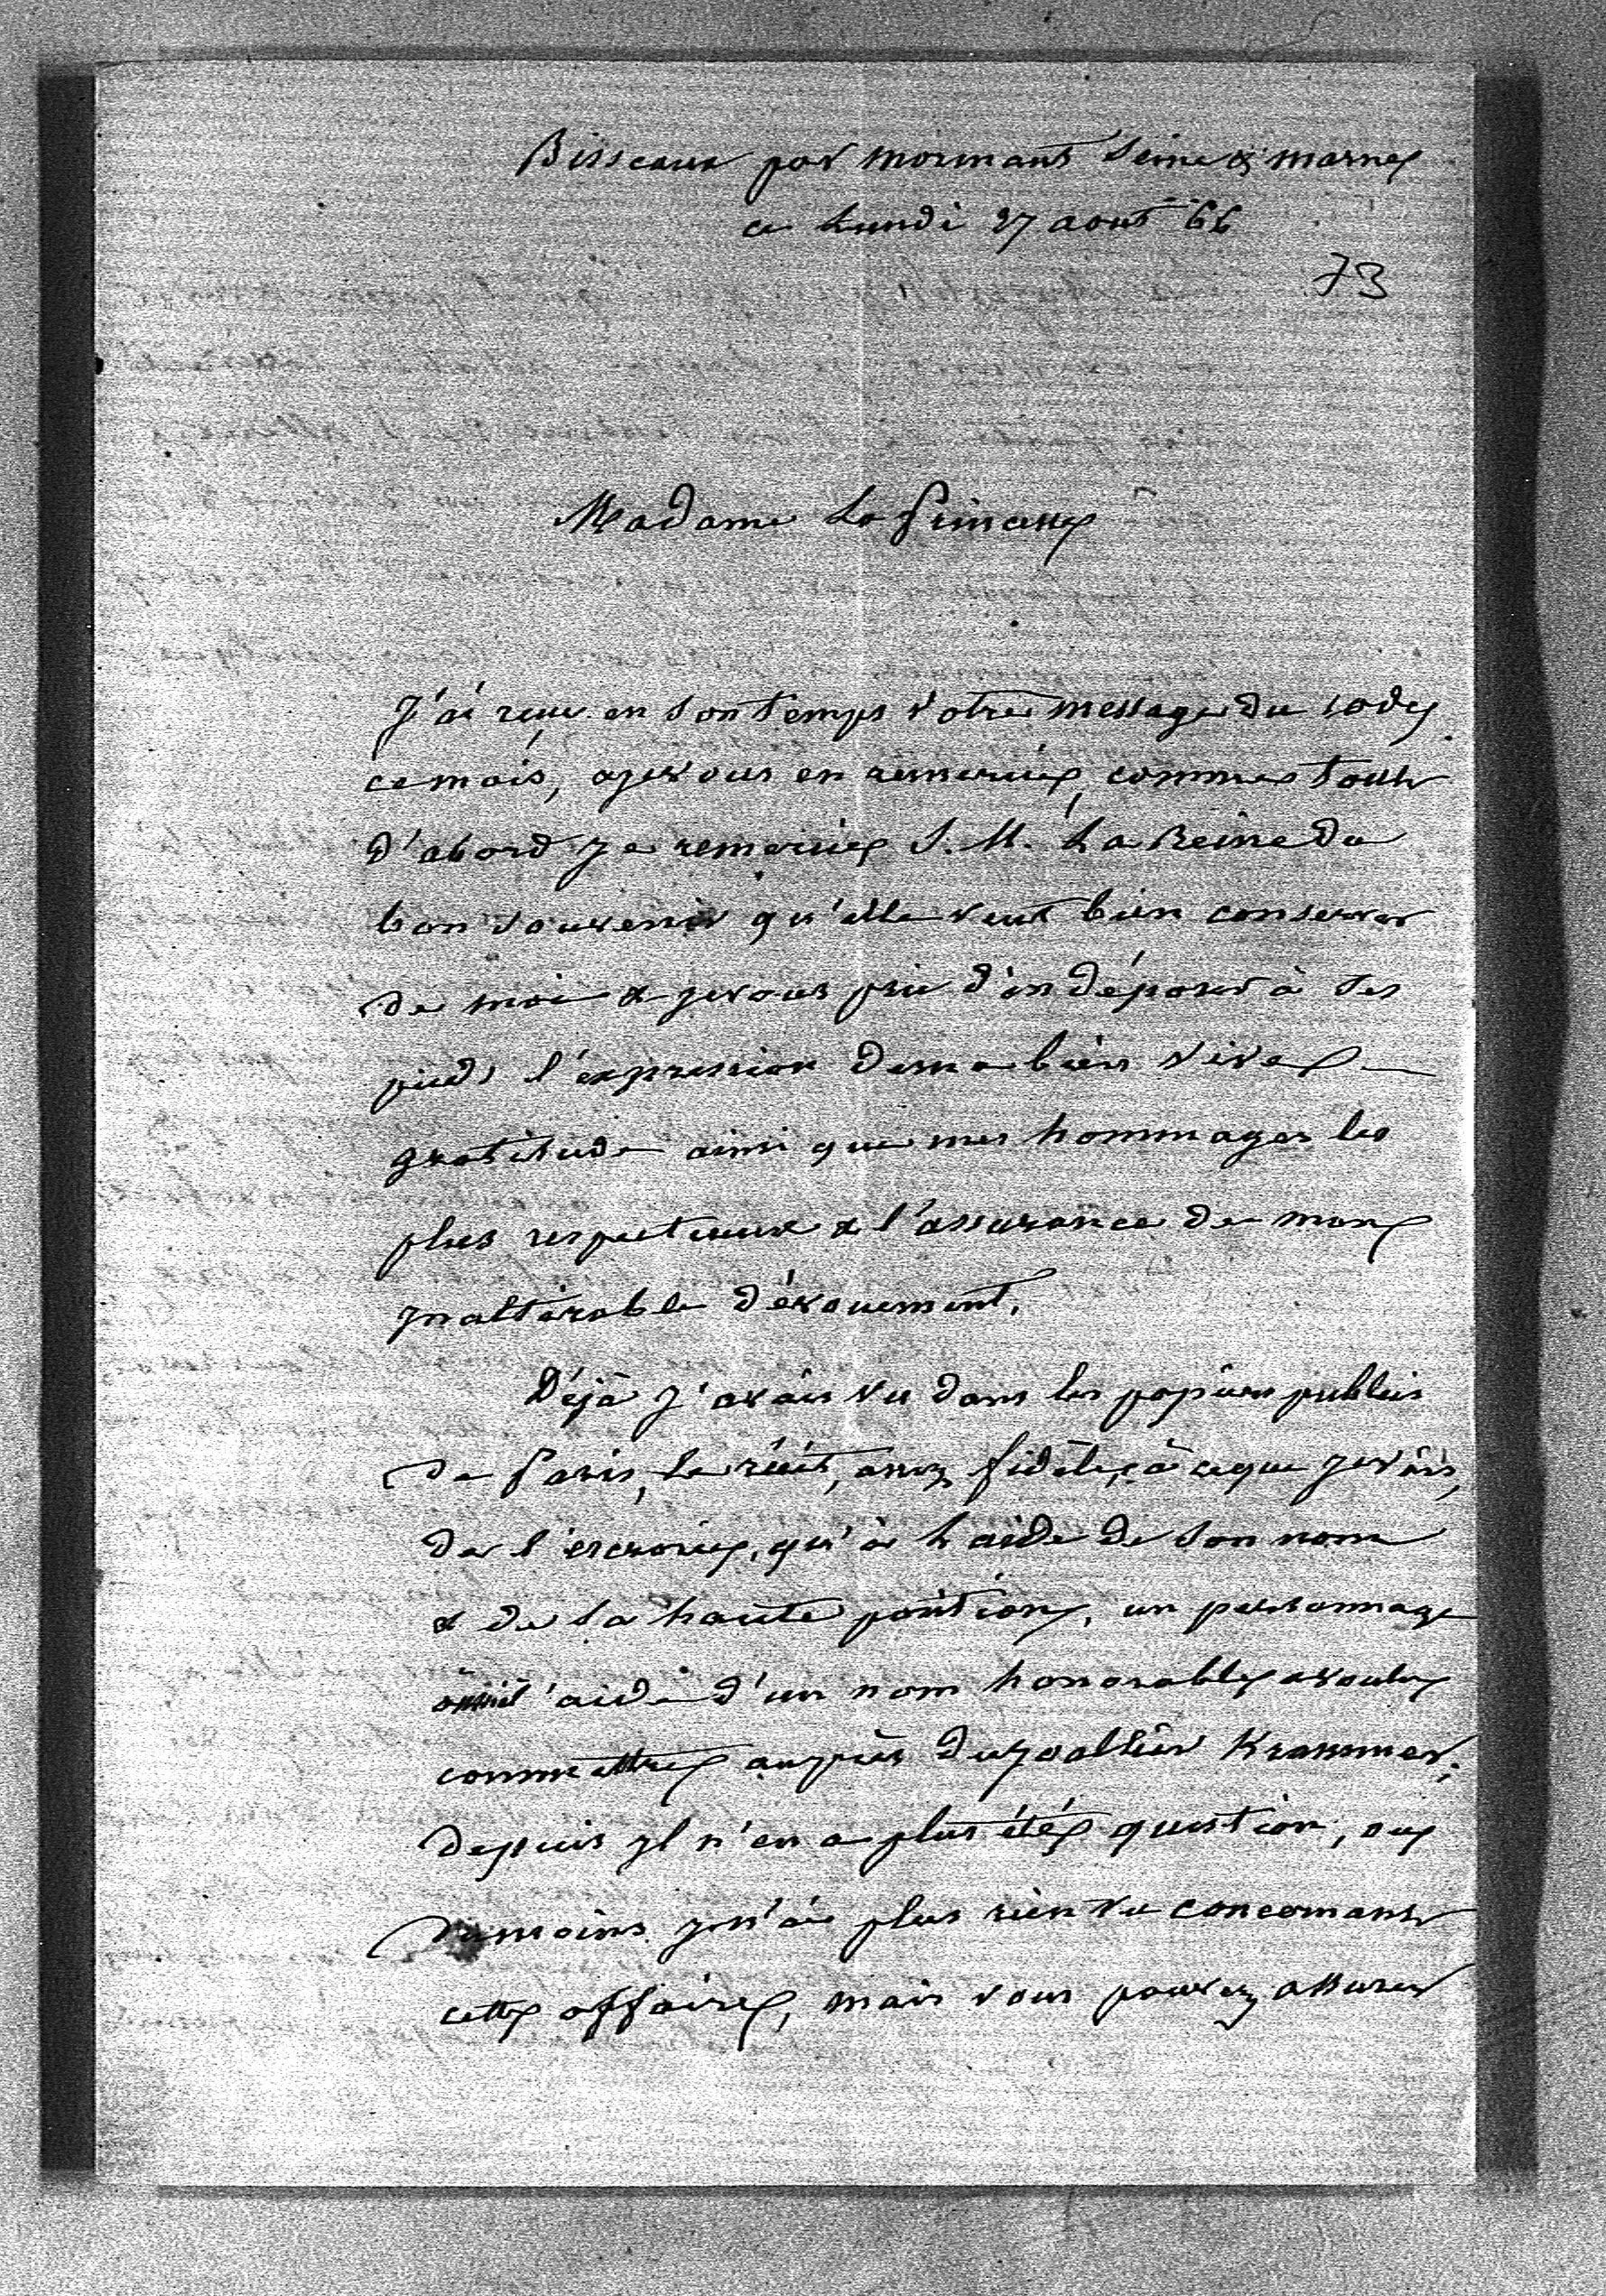 Bisseaux par mormans Seine & marne
ce Lundi 27 aout 66
73
Madame La Princesse
J'ai reçu en son temps votre message du 10 de
ce mois, & je vous en remercie, comme tout
d'abord je remercie S. M. La Reine du
bon souvenir qu'elle veut bien conserver
de moi & je vous prie d'en déposer à ses
pieds l'expression de ma bien vive
gratitude ainsi que mes hommages les
plus respectueux & l'assurance de mon
inaltérable dévouement.
Déjà j'avais vu dans les papiers publics
de Paris, le récit, assez fidèle, à ce que je vois,
de l'escroquerie, qu'à l'aide de son nom
& de sa haute position, un personnage
à l'aide d'un nom honorable a voulu
commettre auprès du joallier Krammer;
depuis il n'en a plus été question, ou
du moins je n'ai plus rien vu concernant
cette affaire, mais vous pouvez assurer